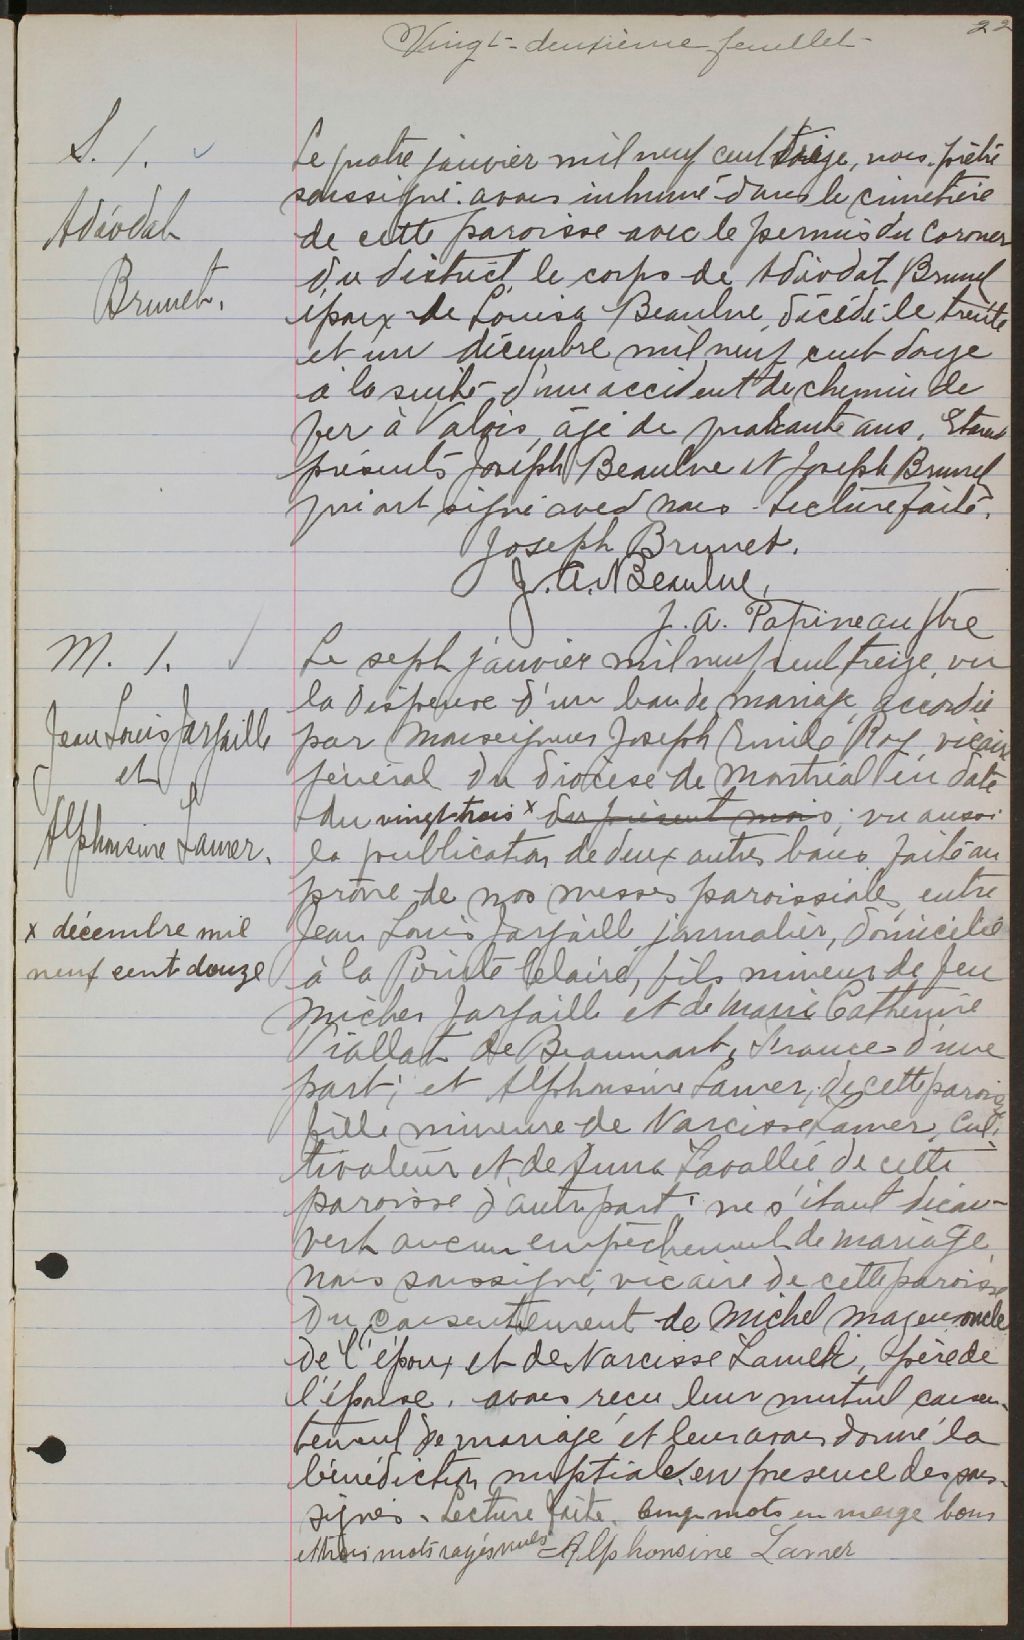 Vingt-deuxième feuillet
22
S. 1.
Adéodat
Brunet.
Le quatre janvier mil neuf cent treize, nous, prêtre
soussigné avons inhumé dans le cimetière
de cette paroisse avec le permis du Coroner
du district, le corps de Adéodat Brunet
époux de Louisa Beaulne, décédé le trente
et un décembre mil neuf cent douze
à la suite d'un accident de chemin de
fer à Valois, âgé de quarante ans. Etaient
présents Joseph Beaulne et Joseph Brunet
qui ont signé avec nous. Lecture faite.
Joseph Brunet.
J. A. N Beaulne,
J. A. Papineau ptre
M. 1.
Jean Louis Jarfaille
et
Alphonsine Lamer.
x décembre mil
neuf cent douze
Le sept janvier mil neuf cent treize, vu
la dispense d'un ban de mariage accordée
par Monseigneur Joseph Emile Roy, vicaire
général du diocèse de Montréal en date
du vingt-trois x du présent mois; vu aussi
la publication de deux autres bans faite au
prône de nos messes paroissiales entre
Jean Louis Jarfaille journalier, domicilié
à la Pointe Claire, fils mineur de feu
Michel Jarfaille et de Marie Catherine
Viallat de Beaumont, France d'une
part; et Alphonsine Lamer, de cette paroisse
fille mineure de Narcisse Lamer, Cul-
tivateur et de Anna Lavallée de cette
paroisse d'autre part; ne s'étant décou-
vert aucun empêchement de mariage
Nous soussigné, vicaire de cette paroisse
du consentement de Michel oncle
de l'époux et de Narcisse Lamer, père de
l'épouse, avons reçu leur mutuel consen-
tement de mariage et leur avons donné la
bénédiction nuptiale en présence des sous-
signés. Lecture faite. Cinq mots en marge bons
et trois mots rayés nuls Alphonsine Lamer